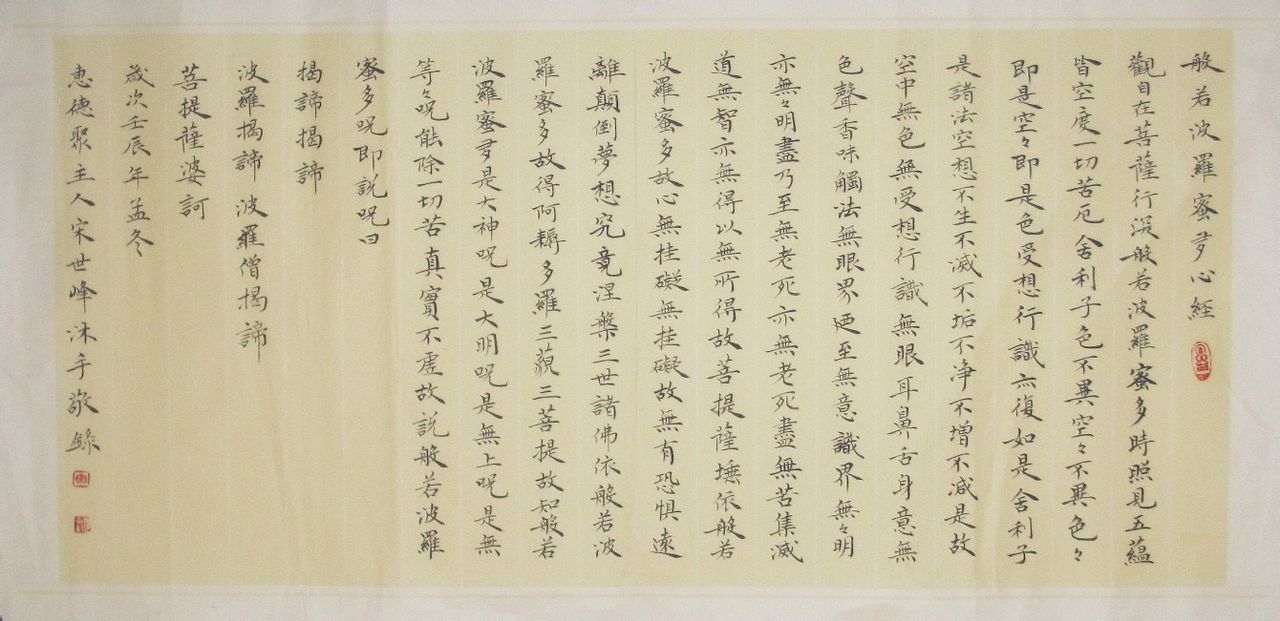 般若波羅蜜多心経
觀自在菩薩行深般若波羅蜜多時照見五蘊
皆空度一切苦厄舍利子色不異空々不異色々
即是空々即是色受想行識亦復如是舍利子
是諸法空想不生不滅不垢不净不增不减是故
空中無色無受想行識無眼耳鼻舌身意無
色聲香味觸法無眼界廼至無意識界無々明
亦無々明盡乃至無老死亦無老死盡無苦集滅
道無智亦無得以無所得故菩提薩埵依般若
波羅蜜多故心無挂礙無挂礙故無有恐惧遠
離顛倒夢想究竟涅槃三世諸佛依般若波
羅蜜多故得阿耨多羅三藐三菩提故知般若
波羅蜜多是大神呪是大明呪是無上呪是無
等々呪能除一切苦真實不虛故説般若波羅
蜜多呪即説呪曰
揭諦揭諦
波羅揭諦 波羅僧揭諦
菩提薩婆訶
歲次壬辰年孟冬
惠德聚主人宋世峰沐手敬錄